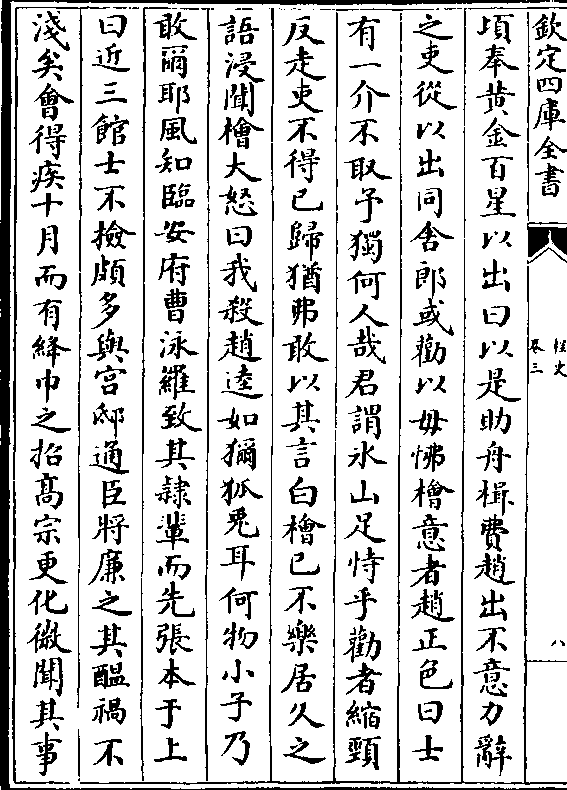 欽定四庫全書
桯史
卷三
八
頃奉黄金百星以出曰以是助舟楫費趙出不意力辭
之吏從以出同舍郎或勸以毋怫檜意者趙正色曰士
有一介不取予獨何人哉君謂氷山足恃乎勸者縮頸
反走吏不得已歸猶弗敢以其言白檜已不樂居久之
語浸聞檜大怒曰我殺趙逵如獮狐兎耳何物小子乃
敢爾耶風知臨安府曹泳羅致其隷軰而先張本于上
曰近三館士不檢頗多與宫邸通臣將廉之其醖禍不
淺矣會得疾十月而有絳巾之招髙宗更化微聞其事